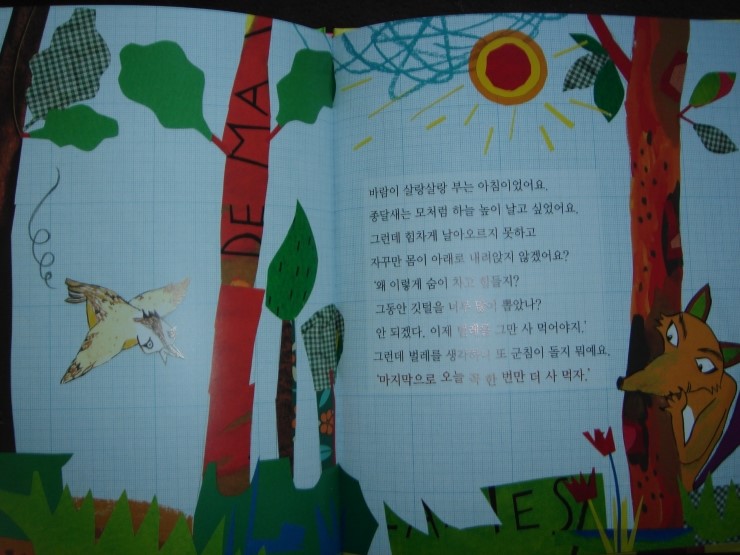 DE MAI
바람이 살랑살랑 부는 아침이었어요.
종달새는 모처럼 하늘 높이 날고 싶었어요.
그런데 힘차게 날아오르지 못하고
자꾸만 몸이 아래로 내려앉지 않겠어요?
'왜 이렇게 숨이 차고 힘들지?
그동안 깃털을 너무 많이 뽑았나?
안 되겠다. 이제 벌레를 그만 사 먹어야지.'
그런데 벌레를 생각하니 또 군침이 돌지 뭐예요.
'마지막으로 오늘 꼭 한 번만 더 사 먹자.'